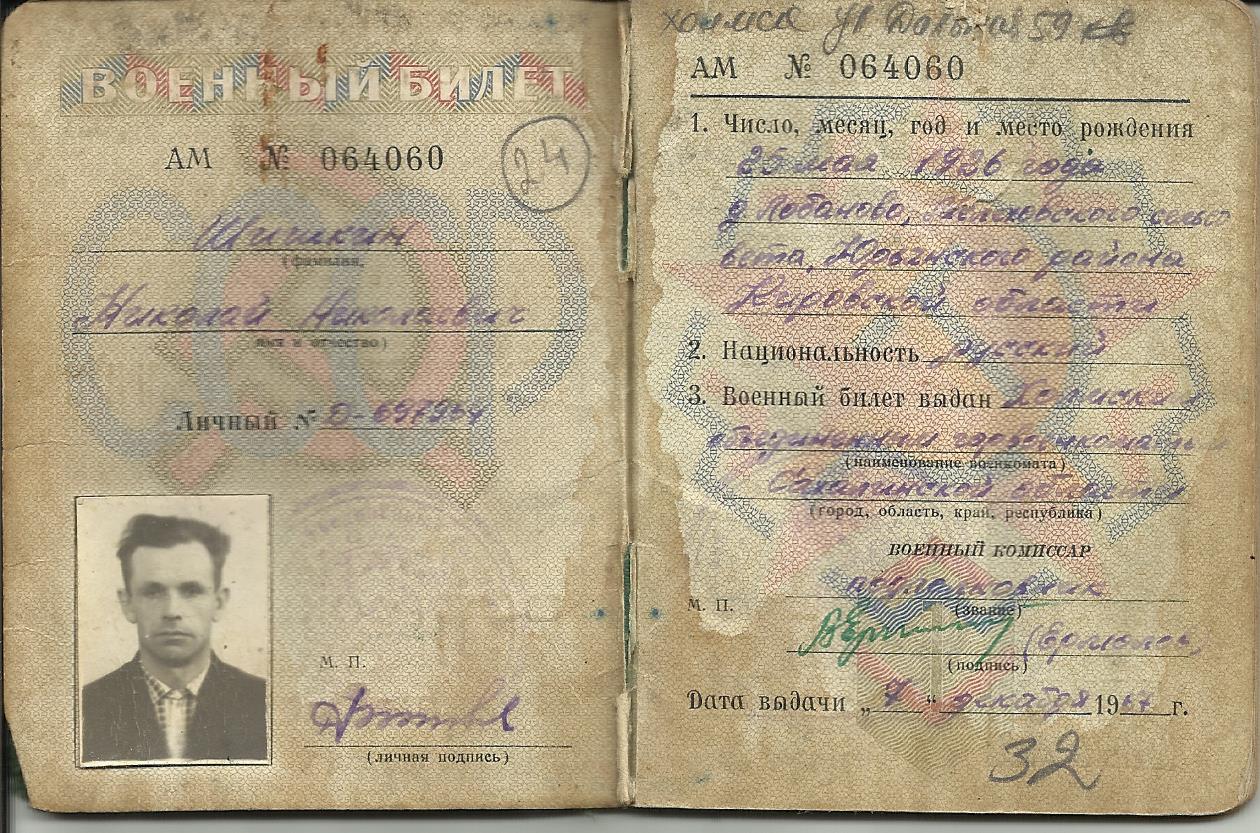 ВОЕННЫЙ БИЛЕТ
АМ № 064060
24
Шишкин
(фамилия)
Николай Николаевич
(имя и отчество)
Личный №
М. П.
(личная подпись)
59
АМ № 064060
1. Число, месяц, год и место рождения
25 мая 1926 года
д Лобаново, сельсо
вета, Юрьянского района
Кировской области
2. Национальность русский
3. Военный билет выдан Холмским
объединенным горвоенкоматом
(наименование военкомата)
Сахалинской области
(город, область, край, республика)
ВОЕННЫЙ КОМИССАР
подполковник
М. П.
(звание)
(подпись)
Дата выдачи „7“ декабря 1967 г.
32